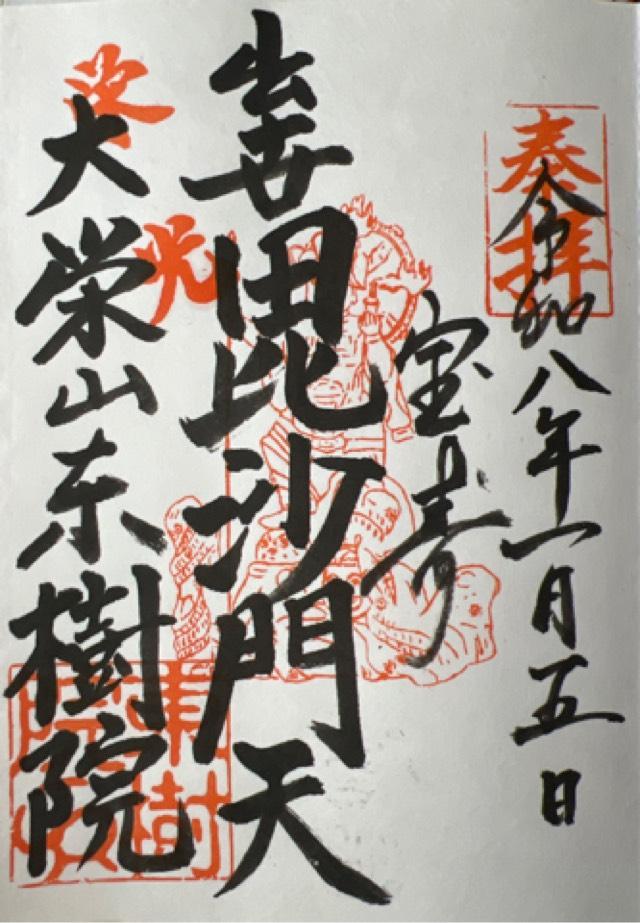 奉拝
令和八年一月五日
宝寿
出世毘沙門天
光
大栄山東樹院
東樹